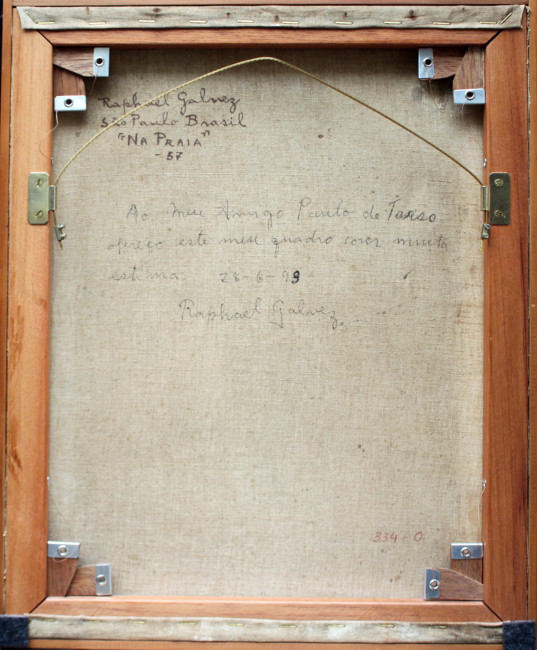 Raphael Galvez
São Paulo Brasil
"NA PRAIA"
- 57
Ao meu Amigo Paulo de Tarso
ofereço este meu quadro com muita
estima. 28-6-93
Raphael Galvez
334-O